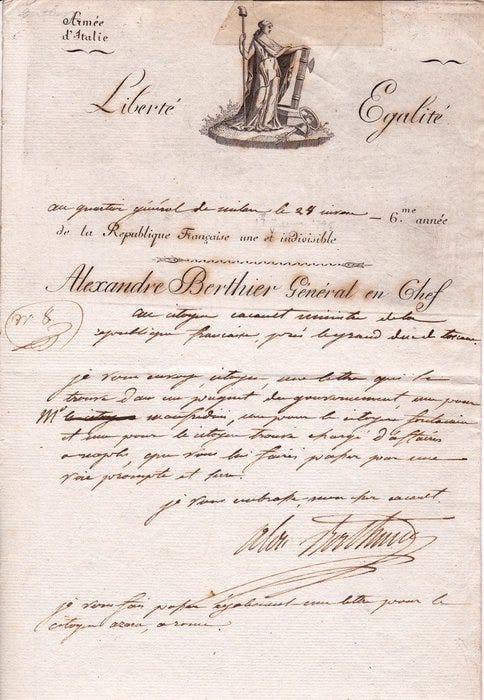 Armée
d'Italie
Liberté Egalité
au quartier général de milan le 28 nivose — 6.me année
de la République Française une et indivisible.
Alexandre Berthier Général en Chef
n° 8.
au citoyen cacault ministre de la
république francaise près le grand duc de toscane.
je vous envoy, citoyen, une lettre qui se
trouve dans un paquet du gouvernement, une pour
Mr manfredini, une pour le citoyen
et une pour le citoyen trouvé chargé d'affaires
a naples, que vous lui faires passer par une
voie prompte et sure.
je vous embrasse, mon cher cacault.
alex Berthier
je vous fais passer également une lettre pour le
citoyen azara, a rome.